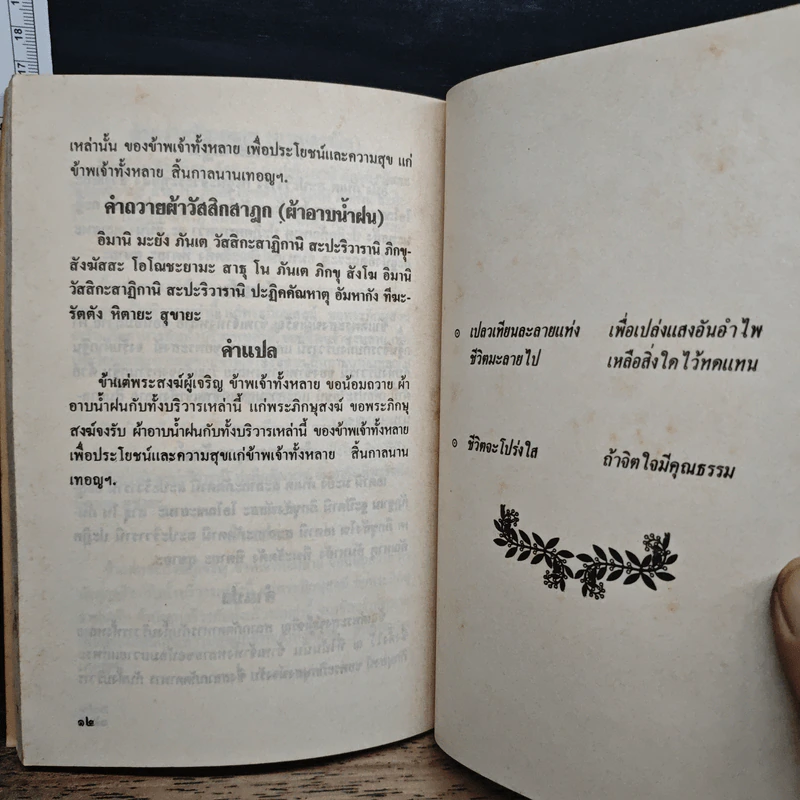 เหล่านั้น ของข้าพเจ้าทั้งหลาย เพื่อประโยชน์และความสุข แก่
ข้าพเจ้าทั้งหลาย สิ้นกาลนานเทอญฯ.
คำถวายผ้าวัสสิกสาฎก (ผ้าอาบน้ำฝน)
อิมานิ มะยัง ภันเต วัสสิกะสาฏิกานิ สะปะริวารานิ ภิกขุ-
สังฆัสสะ โอโณชะยามะ สาธุ โน ภันเต ภิกขุ สังโฆ อิมานิ
วัสสิกะสาฏิกานิ สะปะริวารานิ ปะฏิคคัณหาตุ อัมหากัง ทีฆะ-
รัตตัง หิตายะ สุขายะ
คำแปล
ข้าแต่พระสงฆ์ผู้เจริญ ข้าพเจ้าทั้งหลาย ขอน้อมถวาย ผ้า
อาบน้ำฝนกับทั้งบริวารเหล่านี้ แก่พระภิกษุสงฆ์ ขอพระภิกษุ
สงฆ์จงรับ ผ้าอาบน้ำฝนกับทั้งบริวารเหล่านี้ ของข้าพเจ้าทั้งหลาย
เพื่อประโยชน์และความสุขแก่ข้าพเจ้าทั้งหลาย สิ้นกาลนาน
เทอญฯ.
๑๒
เปลวเทียนละลายแท่ง เพื่อเปล่งแสงอันอำไพ
ชีวิตมะลายไป เหลือสิ่งใดไว้ทดแทน
ชีวิตจะโปร่งใส ถ้าจิตใจมีคุณธรรม
18
17